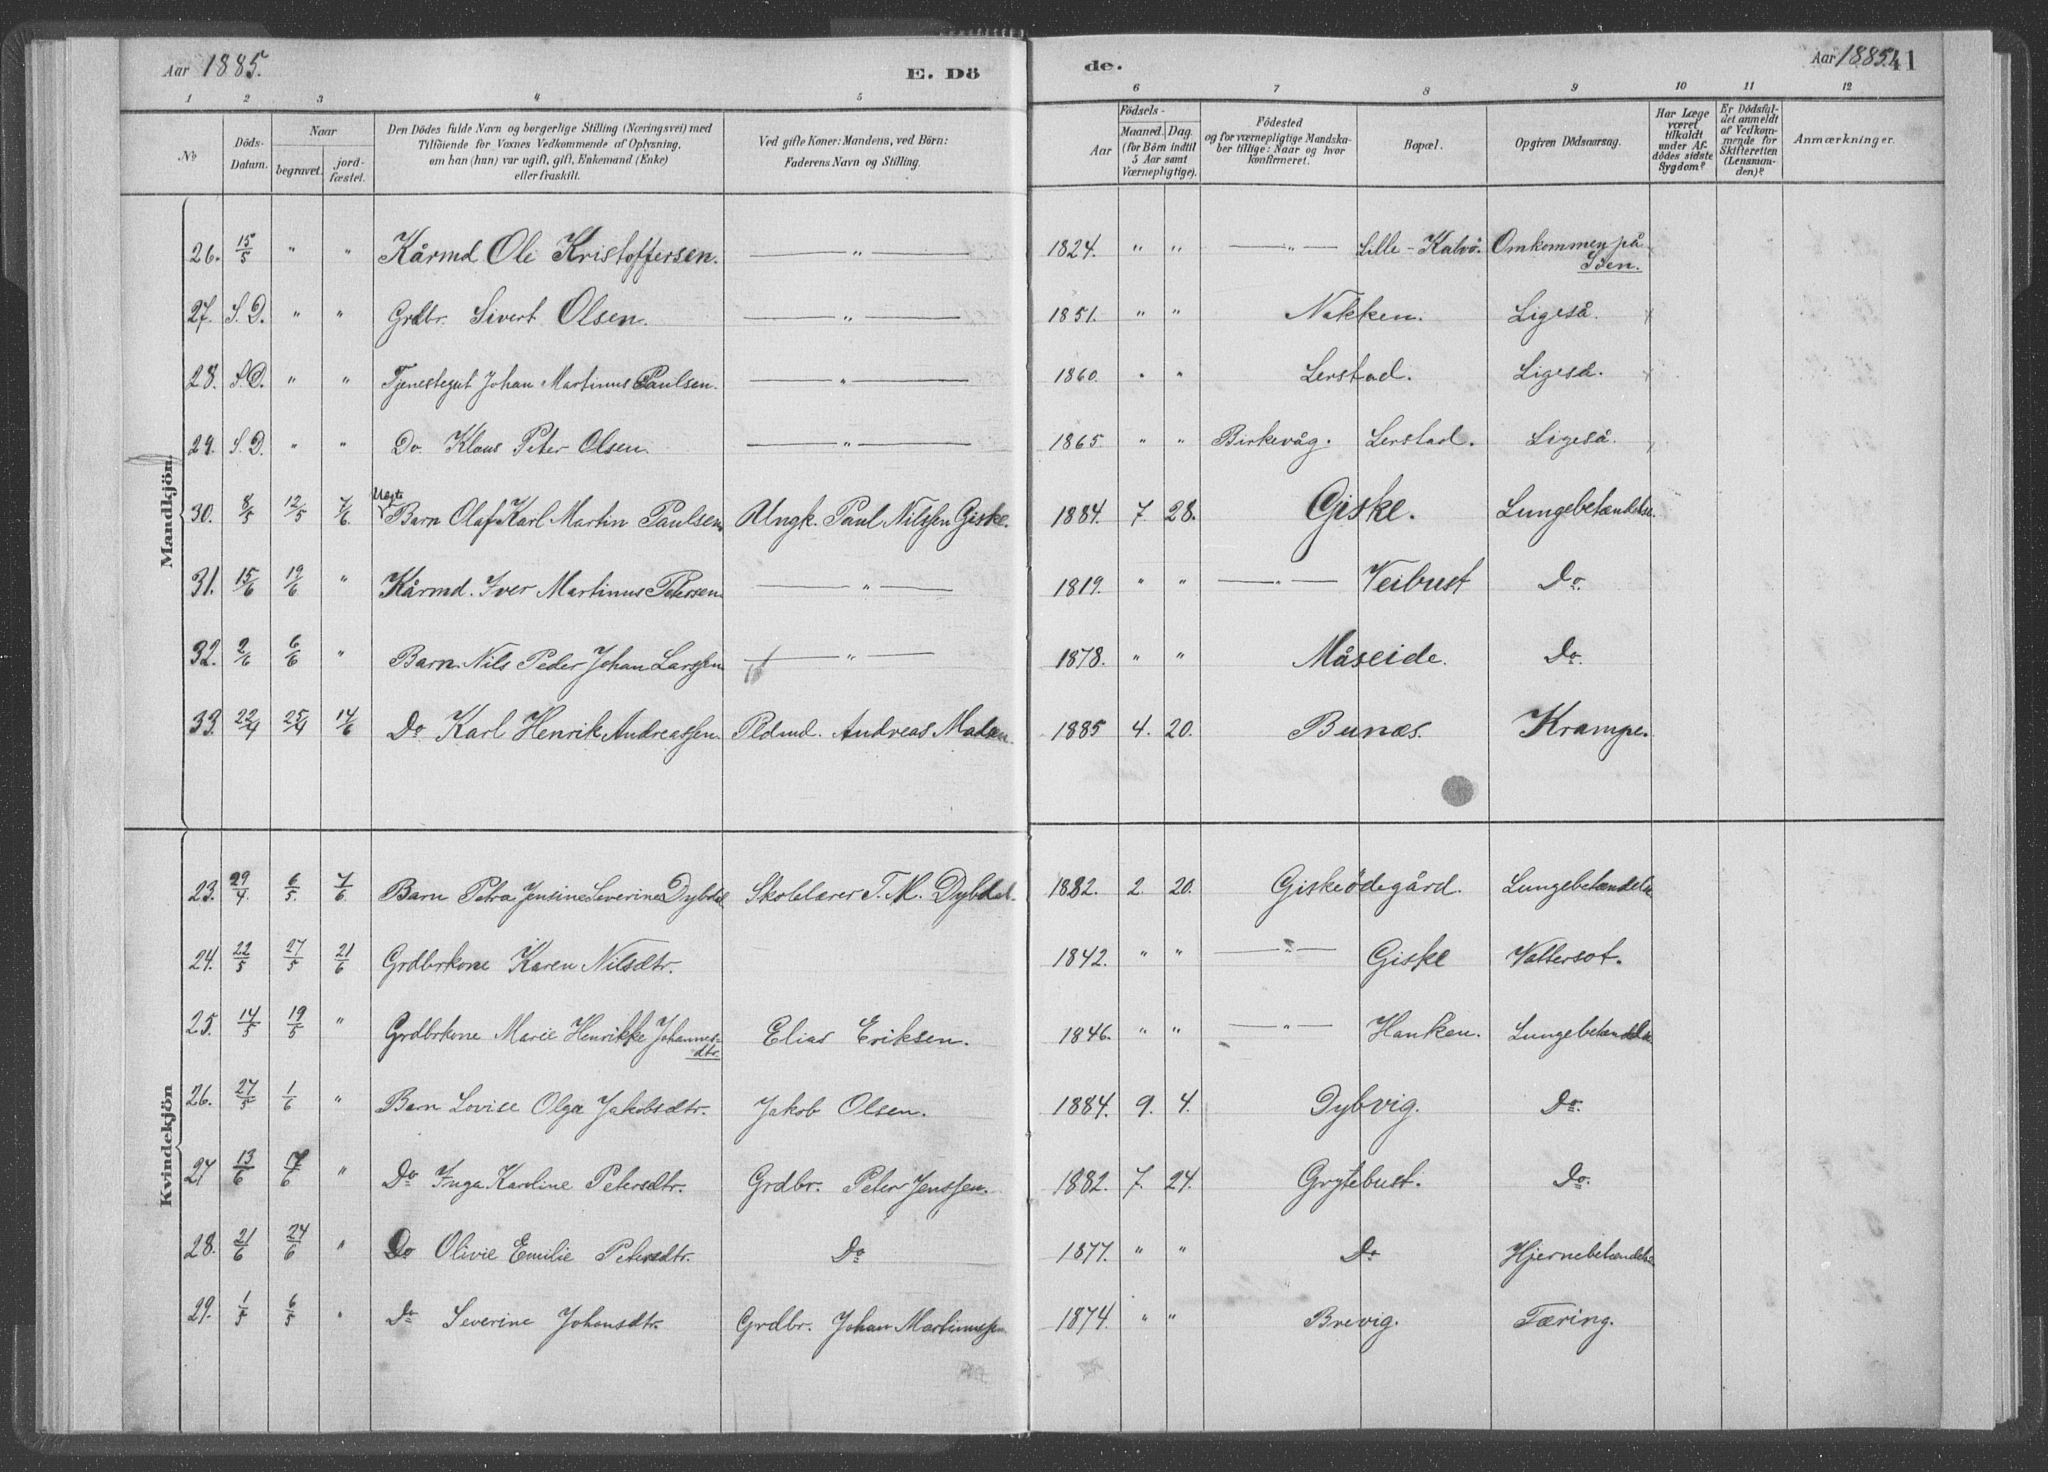 Aar 1885.
E. Dö
de.
Aar 1885. 41
1 2 3 4 5 6 7 8 9 10 11 12
No
Döds-Datum.
Naar
begravet. jord-fæstet.
Den Dödes fulde Navn og borgerlige Stilling (Næringsvei) med
Tilföiende for Voxnes Vedkommende af Oplysning,
om han (hun) var ugift, gift, Enkemand (Enke)
eller fraskilt.
Ved gifte Koner: Mandens, ved Börn:
Faderens Navn og Stilling.
Födsels-
Aar Maaned. Dag.
(for Börn indtil
5 Aar samt
Værnepligtige).
Födested
og for værnepligtige Mandska-
ber tillige: Naar og hvor
konfirmeret.
Bopæl.
Opgiven Dödsaarsag.
Har Læge
været
tilkaldt
under Af-
dödes sidste
Sygdom?
Er Dödsful-
det anmeldt
af Vedkom-
mende for
Skifteretten
(Lensman-
den)?
Anmærkninger.
Mandkjön.
26. 15/5 " " Kårmd Ole Kristoffersen. — " — 1824. " " — " — Lille-Kalvö. Omkommen på
Söen.
27. S. D. " " Grdbr. Sivert Olsen. — " — 1851. " " Nakken. Ligeså.
28. S. D. " " Tjenestegut Johan Martinus Paulsen. — " — 1860. " " Lerstad. Ligeså.
29. S. D. " " Do Klaus Peter Olsen. — " — 1865 " " Birkevåg. Lerstad. Ligeså.
Uegte
30. 8/5 12/5 7/6. Barn Olaf Karl Martin Paulsen. Ungk. Paul Nilssen Giske. 1884. 7. 28. Giske. Lungebetændelse.
31. 15/6 19/6 " Kårmd. Iver Martinus Petersen. — " — 1819. " " — " — Veibust Do.
32. 2/6 6/6 " Barn Nils Peder Johan Larssen — " — 1878. " " Måseide. Do.
33. 22/4 25/4 14/6 Do Karl Henrik Andreassen. Pldmd. Andreas 1885 4. 20. Bunæs. Krampe.
Kvindekjön
23. 29/4. 6/5. 7/6. Barn Petra Jensine Severine Dybdal Skolelærer T. M. Dybdal. 1882. 2. 20. Giskeödegård. Lungebetændelse
24. 22/5 27/5 21/6 Grdbrkone Karen Nilsdtr. 1842. " " — " — Giske Vattersot.
25. 14/5 19/5 " Grdbrkone Marie Henrikke Johannes-
dtr. Elias Eriksen. 1846. " " — " — Hanken. Lungebetændelse
26. 27/5 1/6 " Barn Lovise Olga Jakobsdtr. Jakob Olsen. 1884. 9. 4. Dybvig. Do.
27 13/6 17/6 " Do Inga Karoline Petersdtr. Grdbr. Peter Jenssen. 1882. 7. 24. Grytebust. Do.
28. 21/6 24/6 " Do Olivie Emilie Petersdtr. Do 1877. " " Do Hjernebetændelse
29. 1/5 6/5 " Do Severine Johansdtr. Grdbr. Johan Martinussen 1874. " " Brevig. Tæring.